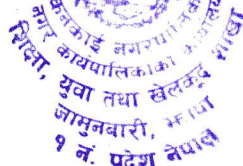 कनकाई नगरपालिका
नगर कार्यपालिकाको कार्यालय
शिक्षा, युवा तथा खेलकुद शाखा
जामुनबारी, झापा
१ नं. प्रदेश नेपाल